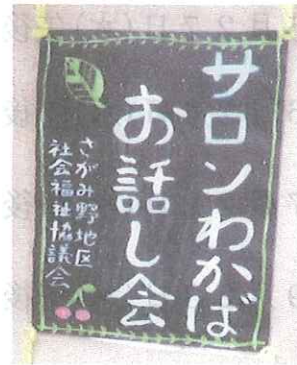 サロンわかば
お話し会
さがみ野地区
社会福祉協議会